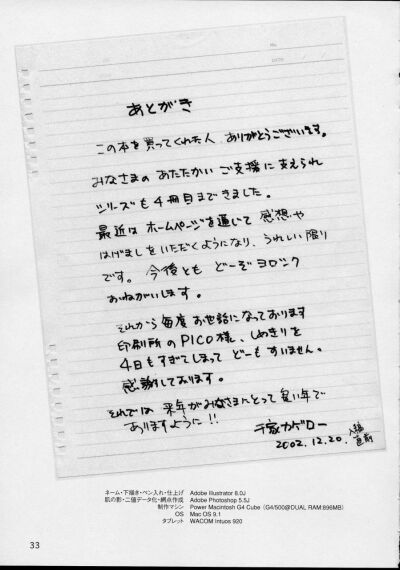 No.
DATE
あとがき
この本を買ってくれた人 ありがとうございます。
みなさまの あたたかい ご支援に支えられ
シリーズも4冊目まできました。
最近は ホームページを通じて 感想や
はげましをいただくようになり、うれしい限り
です。今後とも どーぞ ヨロシク
おねがいします。
それから 毎度 お世話になっております
印刷所の PICO様、しめきりを
4日もすぎてしまって どーも すいません。
感謝しております。
それでは 来年がみなさまにとって 良い年で
ありますように!!
千家カゲロー
2002.12.20. 入稿直前
ネーム・下描き・ペン入れ・仕上げ Adobe Illustrator 8.0J
肌の影・二値データ化・網点作成 Adobe Photoshop 5.5J
制作マシン Power Macintosh G4 Cube (G4/500@DUAL RAM:896MB)
OS Mac OS 9.1
タブレット WACOM Intuos 920
33